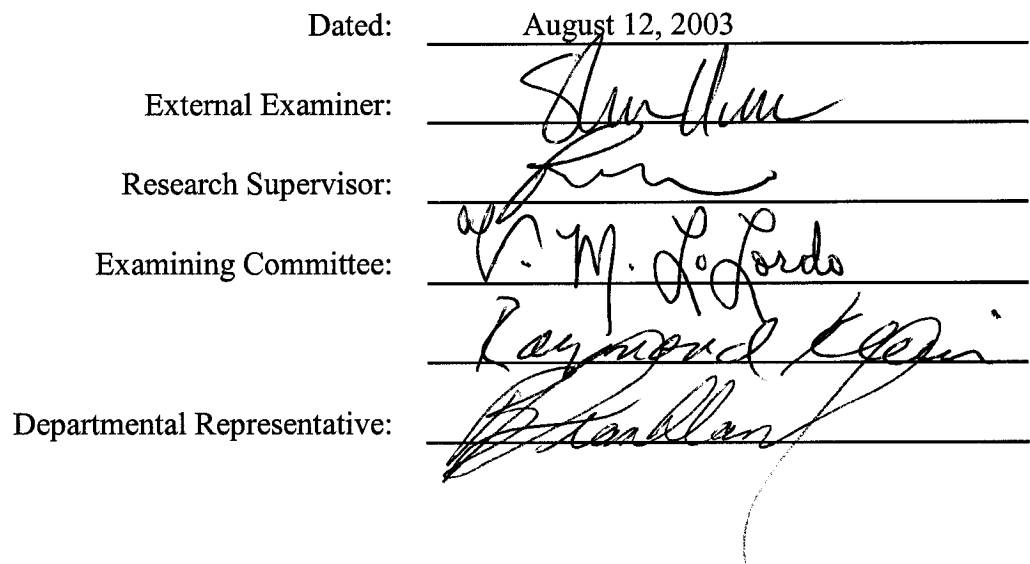 Dated: August 12, 2003
External Examiner:
Research Supervisor:
Examining Committee: V. M. LoLordo
Raymond Klein
Departmental Representative: